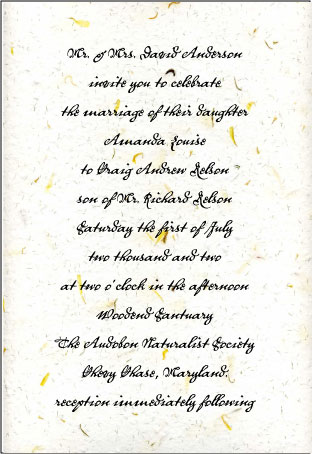 Mr. & Mrs. David Anderson
invite you to celebrate
the marriage of their daughter
Amanda Louise
to Craig Andrew Nelson
son of Mr. Richard Nelson
Saturday the first of July
two thousand and two
at two o'clock in the afternoon
Woodend Santuary
The Audobon Naturalist Society
Chevy Chase, Maryland.
reception immediately following